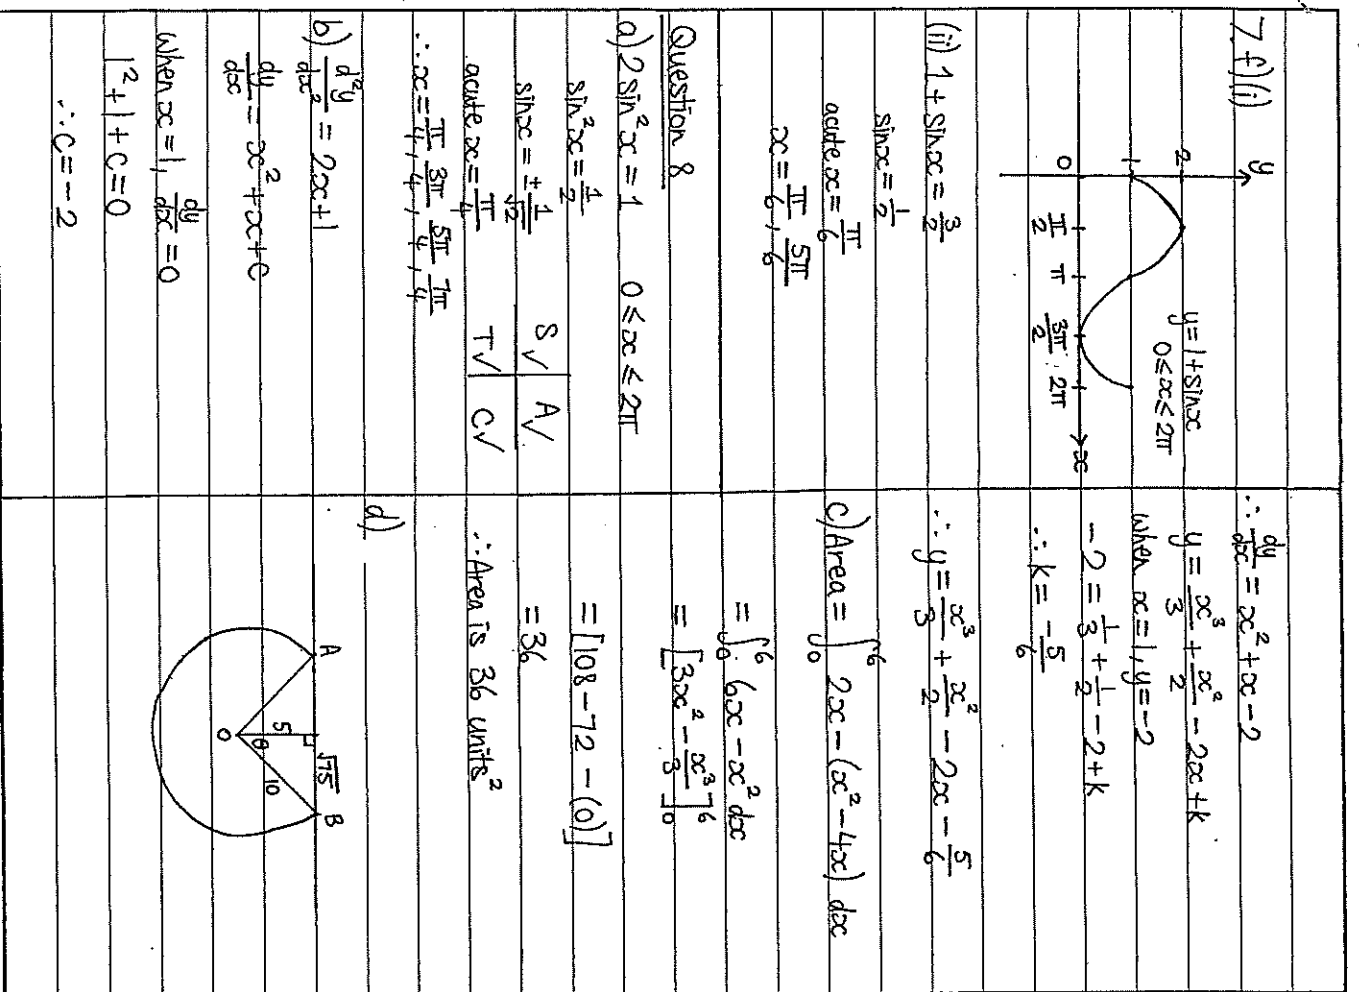 7 f)(i)
y
2
1
0
π/2 π 3π/2 2π
x
y=1+sinx
0≤x≤2π
(ii) 1+sinx=3/2
sinx=1/2
acute x=π/6
x=π/6, 5π/6
Question 8
a) 2sin²x=1 0≤x≤2π
sin²x=1/2
sinx=±1/√2
acute x=π/4
S✓ A✓
T✓ C✓
∴x=π/4, 3π/4, 5π/4, 7π/4
b) d²y/dx²=2x+1
dy/dx=x²+x+c
when x=1, dy/dx=0
1²+1+c=0
∴c=-2
∴dy/dx=x²+x-2
y=x³/3+x²/2-2x+k
when x=1, y=-2
-2=1/3+1/2-2+k
∴k=-5/6
∴y=x³/3+x²/2-2x-5/6
c) Area=∫₀⁶ 2x-(x²-4x) dx
=∫₀⁶ 6x-x² dx
=[3x²-x³/3]₀⁶
=[108-72-(0)]
=36
∴Area is 36 units²
d)
A √75 B
5 10
θ
O